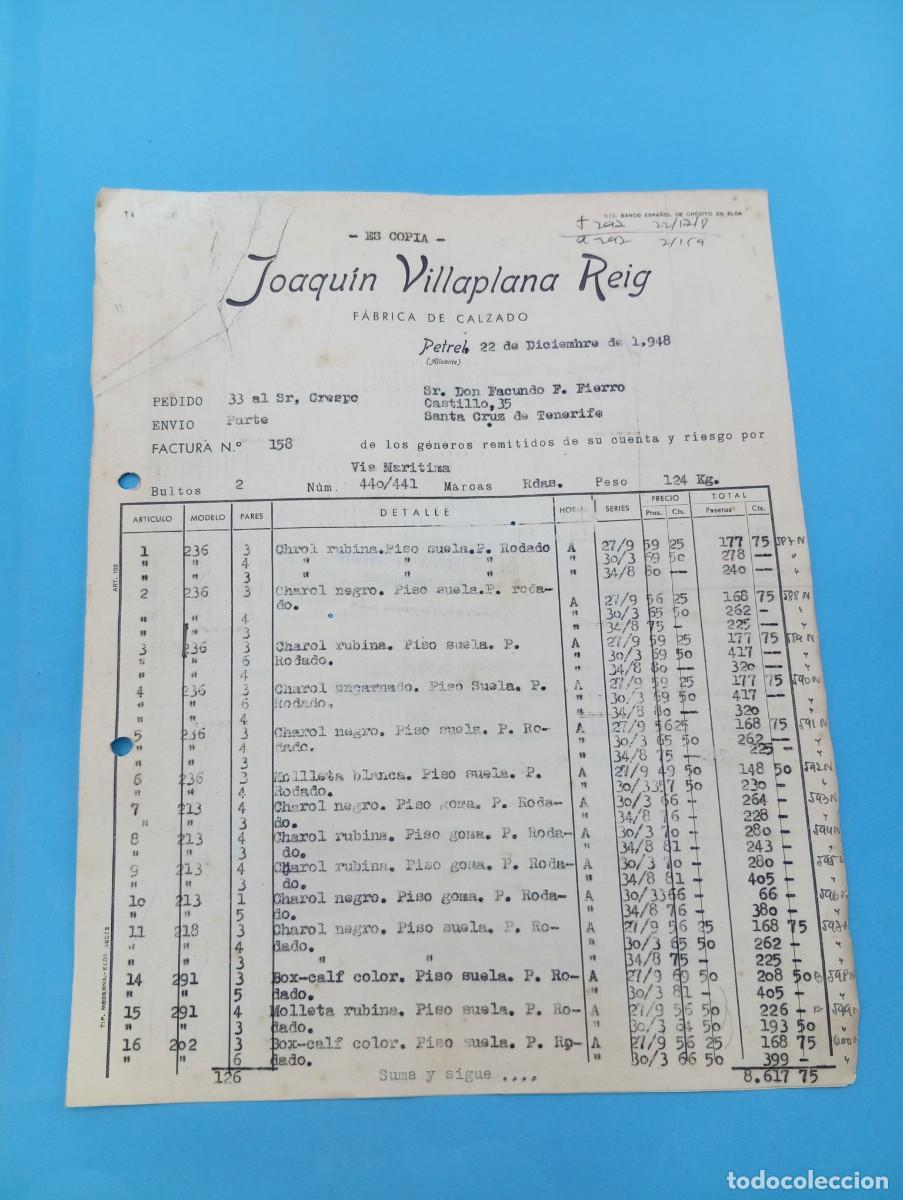 C/C. BANCO ESPAÑOL DE CRÉDITO EN ELDA
22/12/8
- ES COPIA -
Joaquín Villaplana Reig
FÁBRICA DE CALZADO
Petrel, 22 de Diciembre de 1,948
(Alicante)
PEDIDO 33 al Sr, Crespo Sr. Don Facundo F. Fierro
Castillo,35
ENVIO Parte Santa Cruz de Tenerife
FACTURA N.º 158 de los géneros remitidos de su cuenta y riesgo por
Via Maritima
Bultos 2 Núm. 440/441 Marcas Rdas. Peso 124 Kg.
ARTICULO MODELO PARES DETALLE HORMA SERIES PRECIO Ptas. Cts. TOTAL Pesetas Cts.
1 236 3 Chrol rubina.Piso suela.P. Rodado A 27/9 59 25 177 75 587 N
" " 4 " " " " 30/3 69 50 278 — "
" " 3 " " " " 34/8 80 — 240 — "
2 236 3 Charol negro. Piso suela.P. roda- A 27/9 56 25 168 75 588 N
" " 4 do. " 30/3 65 50 262 — "
" " 3 " 34/8 75 — 225 — "
3 236 3 Charol rubina. Piso suela. P. A 27/9 59 25 177 75 589 N
" " 6 Rodado. " 30/3 69 50 417 — "
" " 4 " 34/8 80 — 320 — "
4 236 3 Charol encarnado. Piso Suela. P. A 27/9 59 25 177 75 590 N
" " 6 Rodado. " 30/3 69 50 417 — "
" " 4 " 34/8 80 — 320 — "
5 236 3 Charol negro. Piso suela. P. Ro- A 27/9 5625 168 75 591 N
" " 4 dado. " 30/3 65 50 262 — "
" " 3 " 34/8 75 — 225 — "
6 236 3 Mollleta blanca. Piso suela. P. A 27/9 49 50 148 50 592 N
" " 4 Rodado. " 30/3357 50 230 — "
7 213 4 Charol negro. Piso goma. P. Roda- A 30/3 66 — 264 — 593 N
" " 3 do. " 34/8 76 — 228 — "
8 213 4 Charol rubina. Piso goma. P. Roda- A 30/3 70 — 280 — 594 N
" " 3 do. " 34/8 81 — 243 — "
9 213 4 Charol rubina. Piso goma. P. Roda- A 30/3 70 — 280 — 595
" " 5 do. " 34/8 81 — 405 — "
10 213 1 Charol negro. Piso goma. P. Roda- A 30/3366 — 66 — 596
" " 5 do. " 34/8 76 — 380 — "
11 218 3 Charol negro. Piso suela. P. Ro- A 27/9 56 25 168 75 597
" " 4 dado. " 30/3 65 50 262 — "
" " 3 " " " 34/8 75 — 225 — "
14 291 3 Box-calf color. Piso suela. P. Ro- A 27/9 69 50 208 50 598 N
" " 5 dado. " 30/3 81 — 405 — "
15 291 4 Molleta rubina. Piso suela. P. Ro- A 27/9 56 50 226 — 599
" " 3 dado. " 30/3 64 50 193 50 "
16 202 3 Box-calf color. Piso suela. P. Ro- A 27/9 56 25 168 75 600
" " 6 dado. " 30/3 66 50 399 — "
126 Suma y sigue .... 8.617 75
ART. 102
TIP. MODERNA.-ELDA
todocoleccion